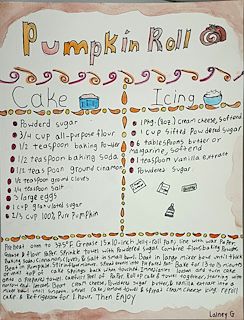 Pumpkin Roll
Cake
Powderd sugar
3/4 cup all-purpose flour
1/2 teaspoon baking powder
1/2 teaspoon baking soda
1/2 teaspoon ground cinnamon
1/2 teaspoon ground cloves
1/4 teaspoon salt
3 large eggs
1 cup granulated sugar
2/3 cup 100% Pure Pumpkin
Icing
1 Pkg. (8oz.) cream cheese, softend
1 cup sifted Powdered sugar
6 tablespoons butter or
margarine, softend
1 teaspoon vanilla extract
Powdered sugar
Preheat oven to 375°F Grease 15x10-inch Jelly-roll pan, line with wax Paper
Grease & flour Paper. Sprinkle towel with Powdered sugar. Combine flour, baking Powder,
Baking soda, cinnamon, cloves, & salt in small bowl. Beat in large mixer bowl until thick
Beat in Pumpkin. Stir in flour mixture. Spread evenly into Prepared Pan. Bake for 13 to 15 minutes
or until top of cake springs back when touched. Immediately loosen and turn cake
onto Prepared towel. Carefully Peel off Paper. Roll up cake & towel together, starting with
narrow end. Beat cream cheese, Powdered sugar, butter, & vanilla extract in a
mixer bowl until smooth. Unroll cake, remove towel & spread cream cheese. Reroll
cake & Refrigerate for 1 hour. Then Enjoy
Lainey G